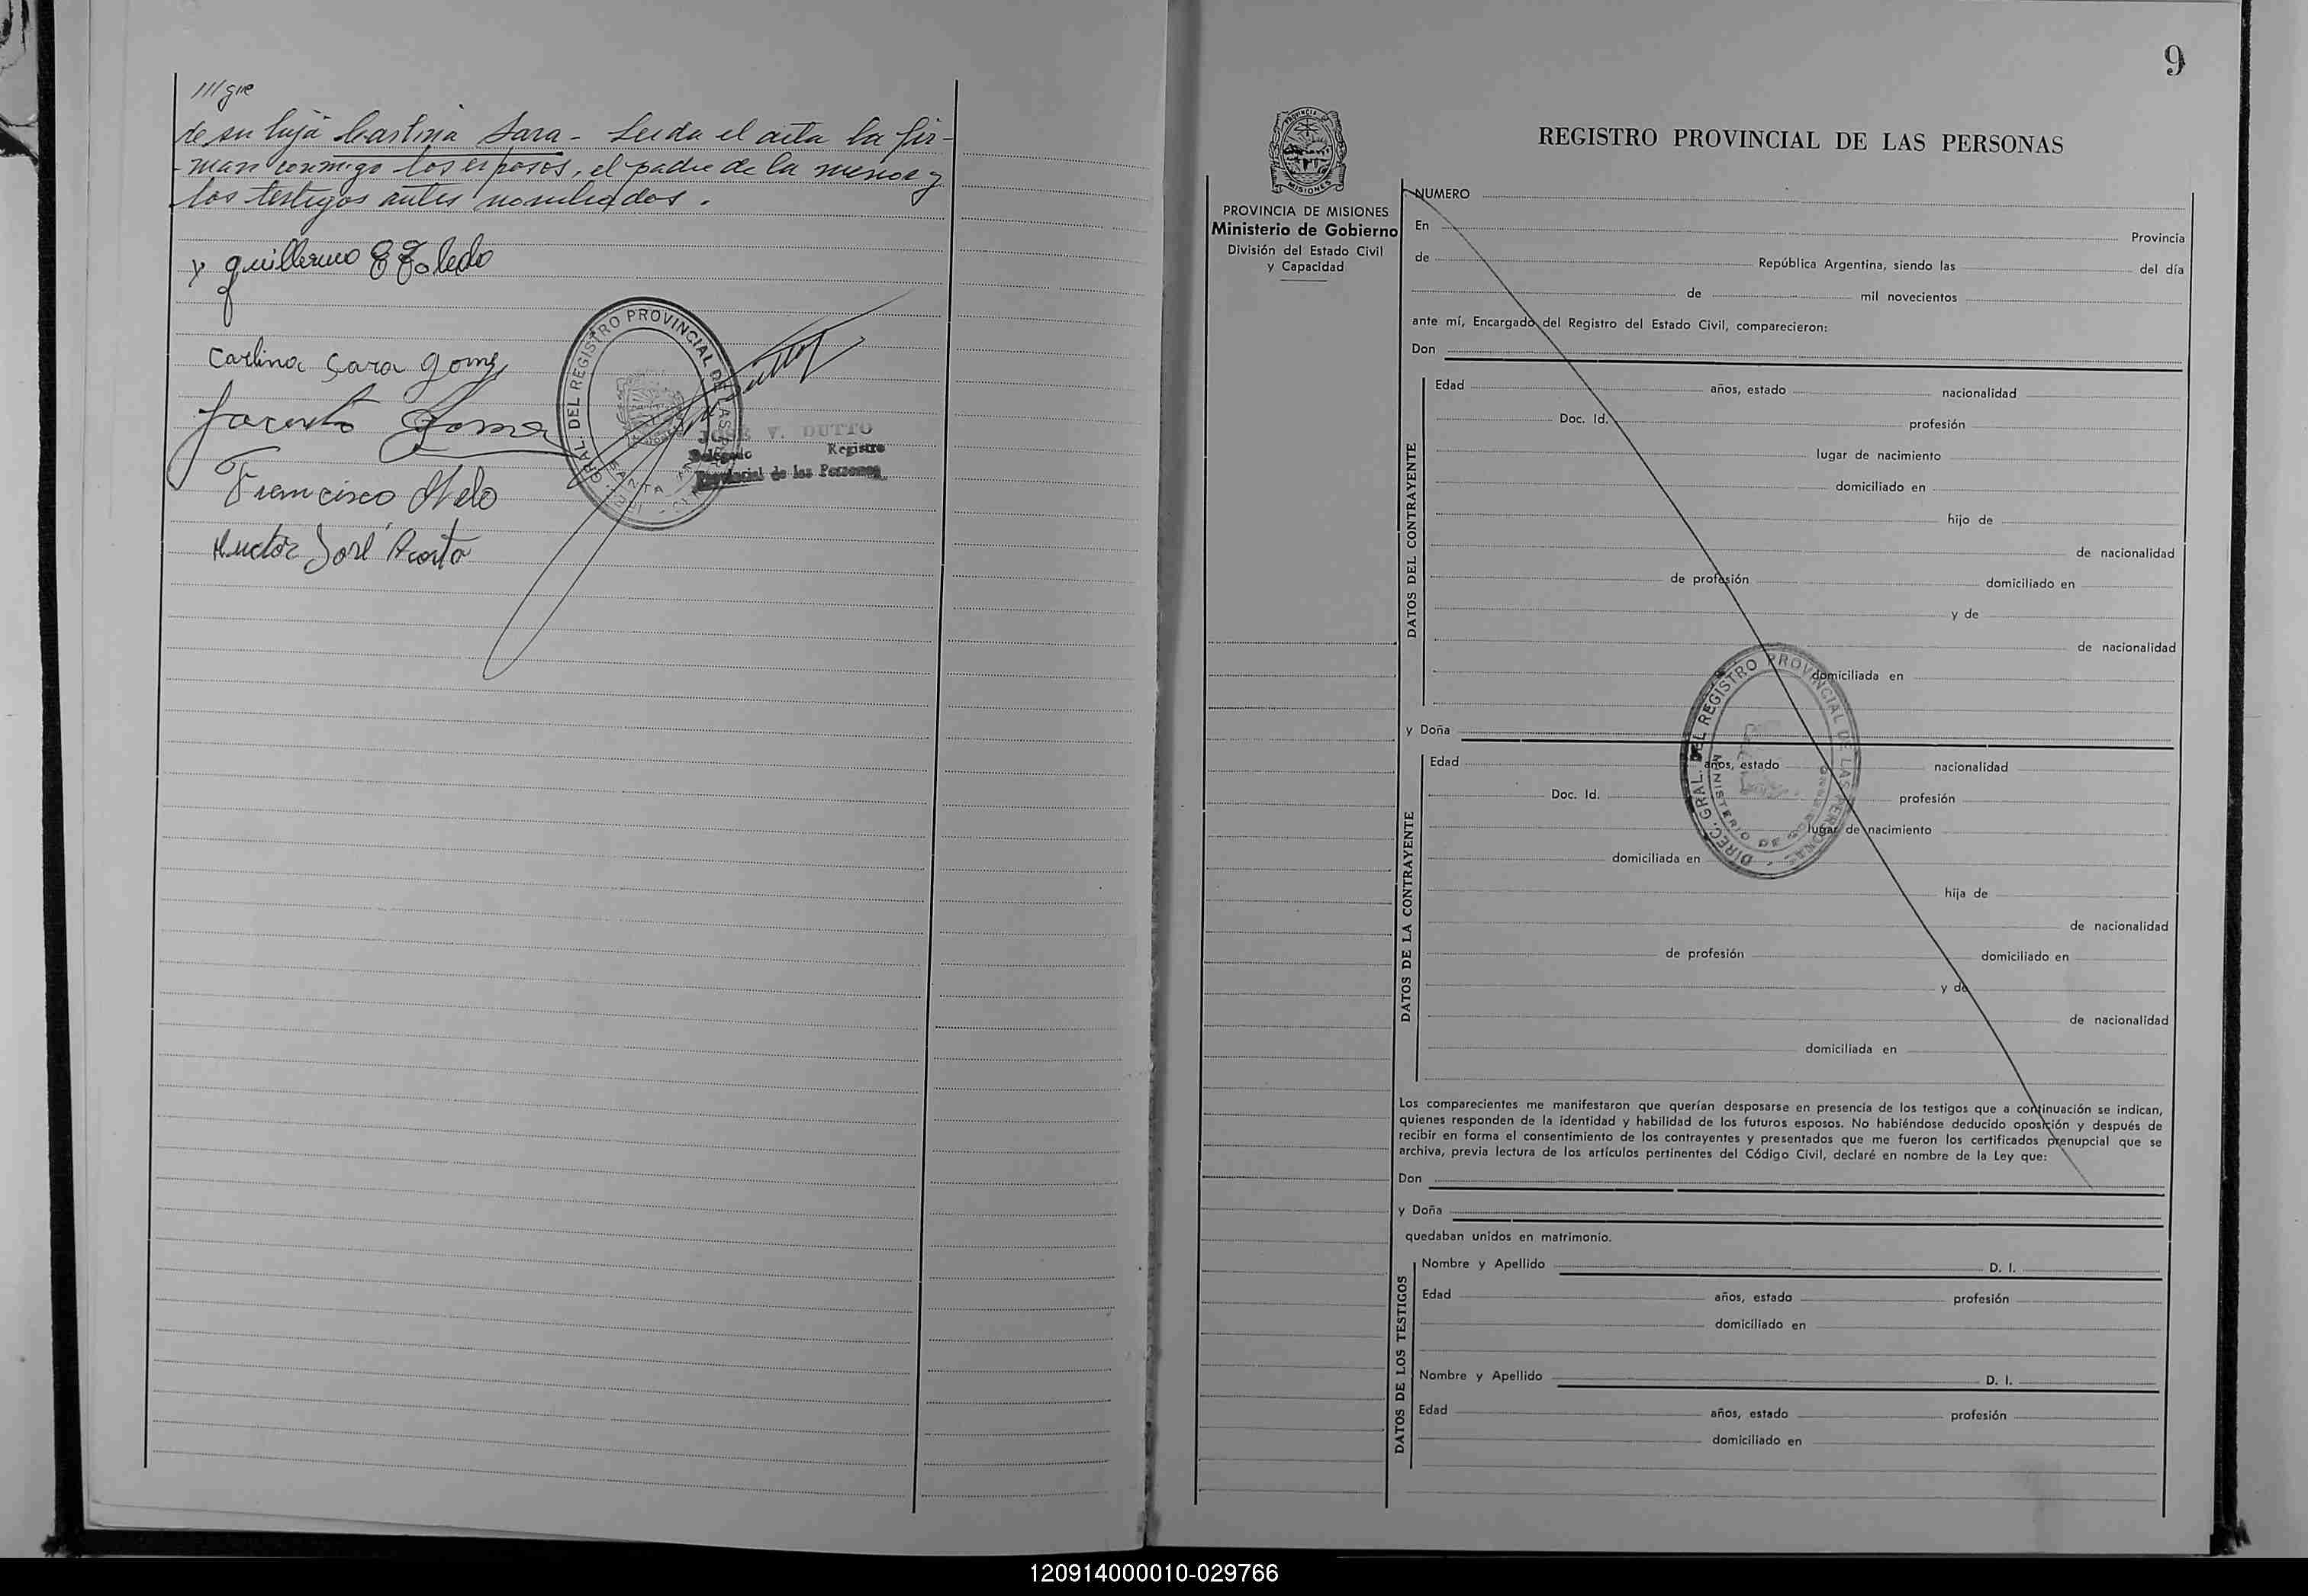 ///gue
de su hija Carlina Sara - Leida el acta la fir-
-man conmigo los esposos, el padre de la menor y
los testigos antes nombrados.
y guillermo E Toledo
Carlina Sara Gomez
Jacinto Gomez
Francisco Melo
Hector José Acosta
GRAL. DEL REGISTRO PROVINCIAL DE LAS
SANTA
JOSE V. DUTTO
Delegado Registro
Provincial de las Personas
9
PROVINCIA DE MISIONES
PROVINCIA DE MISIONES
Ministerio de Gobierno
División del Estado Civil
y Capacidad
REGISTRO PROVINCIAL DE LAS PERSONAS
NUMERO
En Provincia
de República Argentina, siendo las del día
de mil novecientos
ante mí, Encargado del Registro del Estado Civil, comparecieron:
Don
DATOS DEL CONTRAYENTE
Edad años, estado nacionalidad
Doc. Id. profesión
lugar de nacimiento
domiciliado en
hijo de
de nacionalidad
de profesión domiciliado en
y de
de nacionalidad
domiciliada en
y Doña
DIREC. GRAL. DEL REGISTRO PROVINCIAL DE LAS PERSONAS
MINISTERIO DE GOBIERNO
DATOS DE LA CONTRAYENTE
Edad años, estado nacionalidad
Doc. Id. profesión
lugar de nacimiento
domiciliada en
hija de
de nacionalidad
de profesión domiciliado en
y de
de nacionalidad
domiciliada en
Los comparecientes me manifestaron que querían desposarse en presencia de los testigos que a continuación se indican,
quienes responden de la identidad y habilidad de los futuros esposos. No habiéndose deducido oposición y después de
recibir en forma el consentimiento de los contrayentes y presentados que me fueron los certificados prenupcial que se
archiva, previa lectura de los artículos pertinentes del Código Civil, declaré en nombre de la Ley que:
Don
y Doña
quedaban unidos en matrimonio.
DATOS DE LOS TESTIGOS
Nombre y Apellido D. I.
Edad años, estado profesión
domiciliado en
Nombre y Apellido D. I.
Edad años, estado profesión
domiciliado en
120914000010-029766